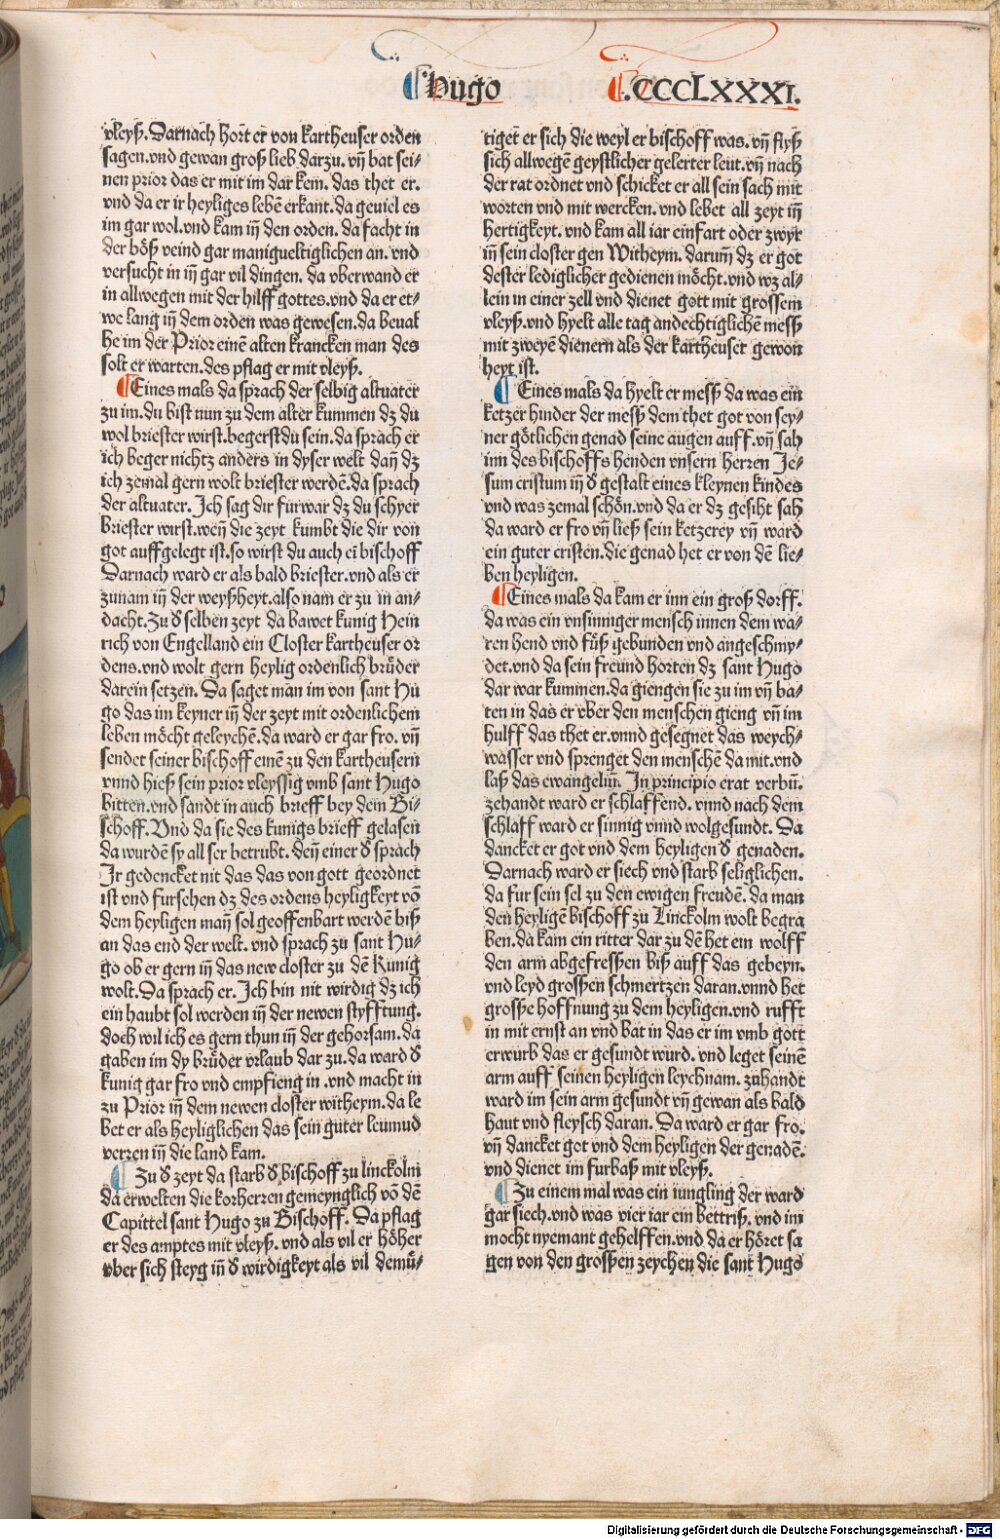 Hugo
.CCCCLXXXI.
vleyß. Darnach hort er von kartheuser orden
sagen. vnd gewan groß lieb darzu. vñ bat sei⸗
nen prior das er mit im dar kem. das thet er.
vnd da er ir heyliges lebē erkant. da geuiel es
im gar wol. vnd kam iñ den orden. da facht in
der böß veind gar manigueltiglichen an. vnd
versucht in iñ gar vil dingen. da vberwand er
in allwegen mit der hilff gottes. vnd da er et⸗
we lang iñ dem orden was gewesen. da beual
he im der Prior einē alten krancken man des
solt er warten. des pflag er mit vleyß.
¶ Eines mals da sprach der selbig altuater
zu im. du bist nun zu dem alter kummen dz du
wol briester wirst. begerstdu sein. da sprach er
ich beger nichtz anders in dyser welt dañ dz
ich zemal gern wolt briester werdē. da sprach
der altuater. Ich sag dir fur war dz du schyer
briester wirst. weñ die zeyt kumbt die dir von
got auffgelegt ist. so wirst du auch eī bischoff
Darnach ward er als bald briester. vnd als er
zunam iñ der weyßheyt. also nam er zu in an⸗
dacht. Zu d̕ selben zeyt da bawet kunig Hein
rich von Engelland ein Closter kartheuser or
dens. vnd wolt gern heylig ordenlich brüder
darein setzen. Da saget man im von sant Hu
go das im keyner iñ der zeyt mit ordenlichem
leben möcht geleychē. da ward er gar fro. vñ
sendet seiner bischoff einē zu den kartheusern
vnnd hieß sein prior vleyssig vmb sant Hugo
bitten. vnd sandt in auch brieff bey dem Bi⸗
schoff. Vnd da sie des kunigs brieff gelasen
da wurdē sy all ser betrubt. deñ einer d̕ sprach
Ir gedencket nit das das von gott geordnet
ist vnd fursehen dz des ordens heyligkeyt vō
dem heyligen mañ sol geoffenbart werdē biß
an das end der welt. vnd sprach zu sant Hu⸗
go ob er gern iñ das new closter zu dē Kunig
wolt. Da sprach er. Ich bin nit wirdig dz ich
ein haubt sol werden iñ der newen styfftung.
doch wil ich es gern thun iñ der gehorsam. da
gaben im dy brüder vrlaub dar zu. da ward d̕
kunig gar fro vnd empfieng in. vnd macht in
zu Prior iñ dem newen closter witheym. da le
bet er als heyliglichen das sein guter leumud
verren iñ die land kam.
¶ Zu d̕ zeyt da starb d̕ bischoff zu linckoln
da erwelten die korherren gemeynglich vō dē
Capittel sant Hugo zu Bischoff. Da pflag
er des amptes mit vleyß. vnd als vil er höher
vber sich steyg iñ d̕ wirdigkeyt als vil demü⸗
tiget er sich die weyl er bischoff was. vñ flyß
sich allwegē geystlicher gelerter leut. vñ nach
der rat ordnet vnd schicket er all sein sach mit
worten vnd mit wercken. vnd lebet all zeyt iñ
hertigkeyt. vnd kam all iar einfart oder zwyr
iñ sein closter gen Witheym. darum̄ dz er got
dester lediglicher gedienen möcht. vnd wz al⸗
lein in einer zell vnd dienet gott mit grossem
vleyß. vnd hyelt alle tag andechtiglichē meß
mit zweyē dienern als der kartheuser gewon
heyt ist.
¶ Eines mals da hyelt er meß da was ein
ketzer hinder der meß dem thet got von sey⸗
ner götlichen genad seine augen auff. vñ sah
inn des bischoffs henden vnsern herren Je⸗
sum cristum iñ d̕ gestalt eines kleynen kindes
vnd was zemal schön. vnd da er dz gesiht sah
da ward er fro vñ ließ sein ketzerey vñ ward
ein guter cristen. die genad het er von dē lie⸗
ben heyligen.
¶ Eines mals da kam er inn ein groß dorff.
da was ein vnsinniger mensch innen dem wa⸗
ren hend vnd füß gebunden vnd angeschmy⸗
det. vnd da sein freund horten dz sant Hugo
dar war kummen. da giengen sie zu im vñ ba⸗
ten in das er vber den menschen gieng vñ im
hulff das thet er. vnnd gesegnet das weych⸗
wasser vnd sprenget den menschē da mit. vnd
laß das ewangeliū. In principio erat verbū.
zehandt ward er schlaffend. vnnd nach dem
schlaff ward er sinnig vnnd wolgesundt. Da
dancket er got vnd dem heyligen d̕ genaden.
Darnach ward er siech vnd starb seliglichen.
da fur sein sel zu den ewigen freudē. da man
den heyligē bischoff zu Linckoln wolt begra
ben. da kam ein ritter dar zu dē het ein wolff
den arm abgefressen biß auff das gebeyn.
vnd leyd grossen schmertzen daran. vnnd het
grosse hoffnung zu dem heyligen. vnd rufft
in mit ernst an vnd bat in das er im vmb gott
erwurb das er gesundt wurd. vnd leget seinē
arm auff seinen heyligen leychnam. zuhandt
ward im sein arm gesundt vñ gewan als bald
haut vnd fleysch daran. Da ward er gar fro.
vñ dancket got vnd dem heyligen der genadē.
vnd dienet im furbaß mit vleyß.
¶ Zu einem mal was ein iungling der ward
gar siech. vnd was vier iar ein bettriß. vnd im
mocht nyemant gehelffen. vnd da er höret sa
gen von den grossen zeychen die sant Hugo
Digitalisierung gefördert durch die Deutsche Forschungsgemeinschaft - DFG